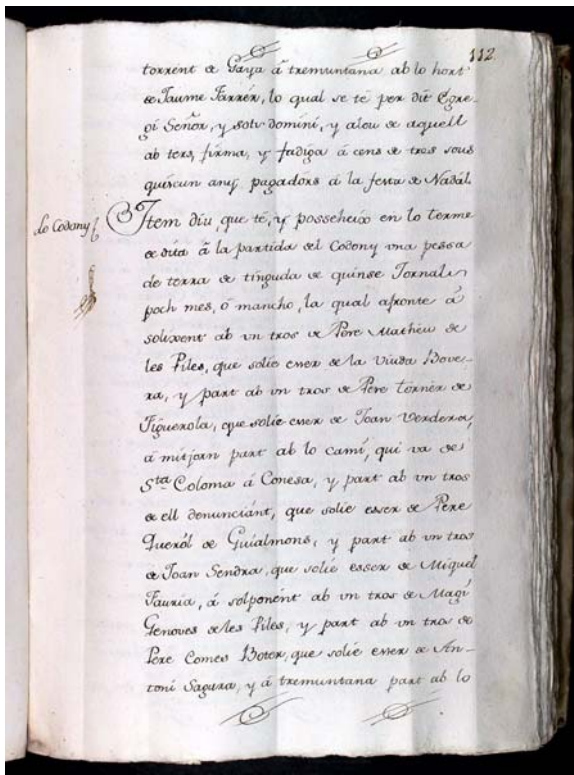 112
torrent de Gaya á tremuntana ab lo hort
de Jaume Farrér, lo qual se té per dit Egre-
gi Señor, y sots domini, y alou de aquell
ab ters, firma, y fadiga á cens de tres sous
quiscun any, pagadórs á la festa de Nadál.
lo Codony
Item diu, que té, y posseheix en lo terme
de dita á la partida del Codony vna pessa
de terra de tinguda de quinse Jornals
poch mes, ó mancho, la qual afronte á
solixent ab vn tros de Pere Matheu de
les Piles, que solie esser de la Viuda Bove-
ra, y part ab vn tros de Pere Tornér de
Figuerola, que solie esser de Joan Verdera,
á mitjorn part ab lo camí, qui va de
Sta Coloma á Conesa, y part ab vn tros
de ell denunciánt, que solie esser de Pere
Queról de Guialmons, y part ab vn tros
de Joan Sendra, que solie esser de Miquel
Fauria, á solponént ab vn tros de Magí
Genoves de les Piles, y part ab vn tros de
Pere Comes Boter, que solie esser de An-
toni Sagura, y á tremuntana part ab lo